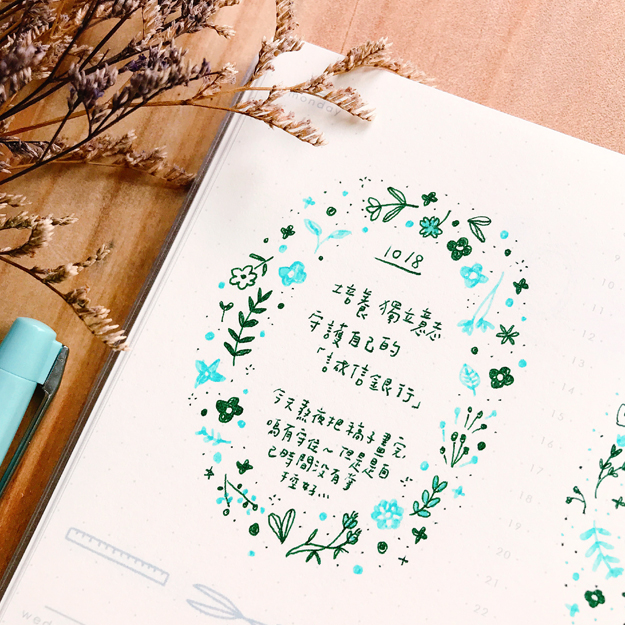 monday
1018
培養獨立意志
守護自己的
「誠信銀行」
今天熬夜把稿子畫完
嗚有守住~但是是自
己時間沒有掌
控好...
9
10
11
12
13
14
15
16
17
18
19
20
21
22
wed